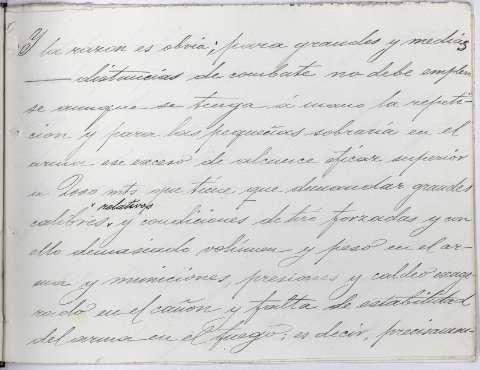 Y la razon es obvia; para grandes y medias
distancias de combate no debe emplear
se aunque se tenga á mano la repeti-
cion y para las pequeñas sobraría en el
arma ese exceso de alcance eficaz superior
a 2000 mts que tiene que demandar grandes
relativos
calibres y condiciones de tiro forzadas y con
ello demasiado volúmen y peso en el ar-
ma y municiones, presiones y caldeo exage-
rado en el cañon y falta de estabilidad
del arma en el fuego; es decir, precisamen-